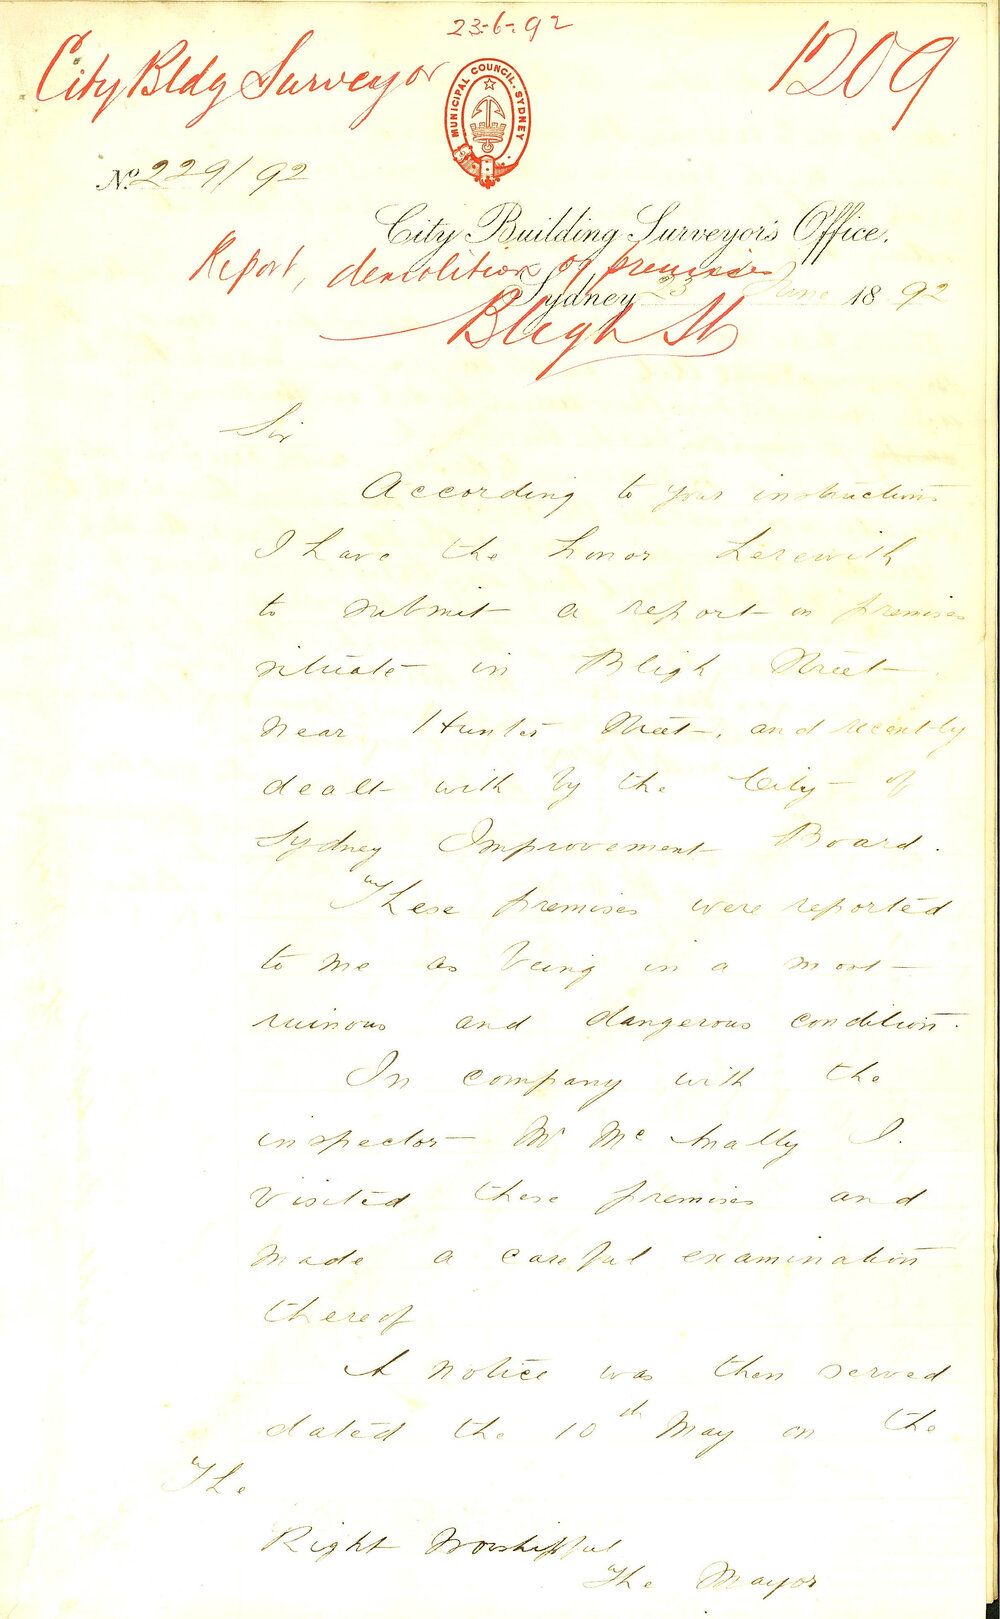 23-6-92
City Bldg Surveyor
1209
MUNICIPAL COUNCIL. SYDNEY
No. 229/92
City Building Surveyor's Office.
Report, demolition of premises
Sydney 23 June 1892
Bligh St
Sir
According to your instructions
I have the honor herewith
to submit a report on premises
situate in Bligh Street
near Hunter Street, and recently
dealt with by the City of
Sydney Improvement Board.
These premises were reported
to me as being in a most
ruinous and dangerous condition.
In company with the
inspector Mr McAnally I.
visited these premises and
made a careful examination
thereof
A notice was then served
dated the 10th May on the
The
Right Worshipful
The Mayor